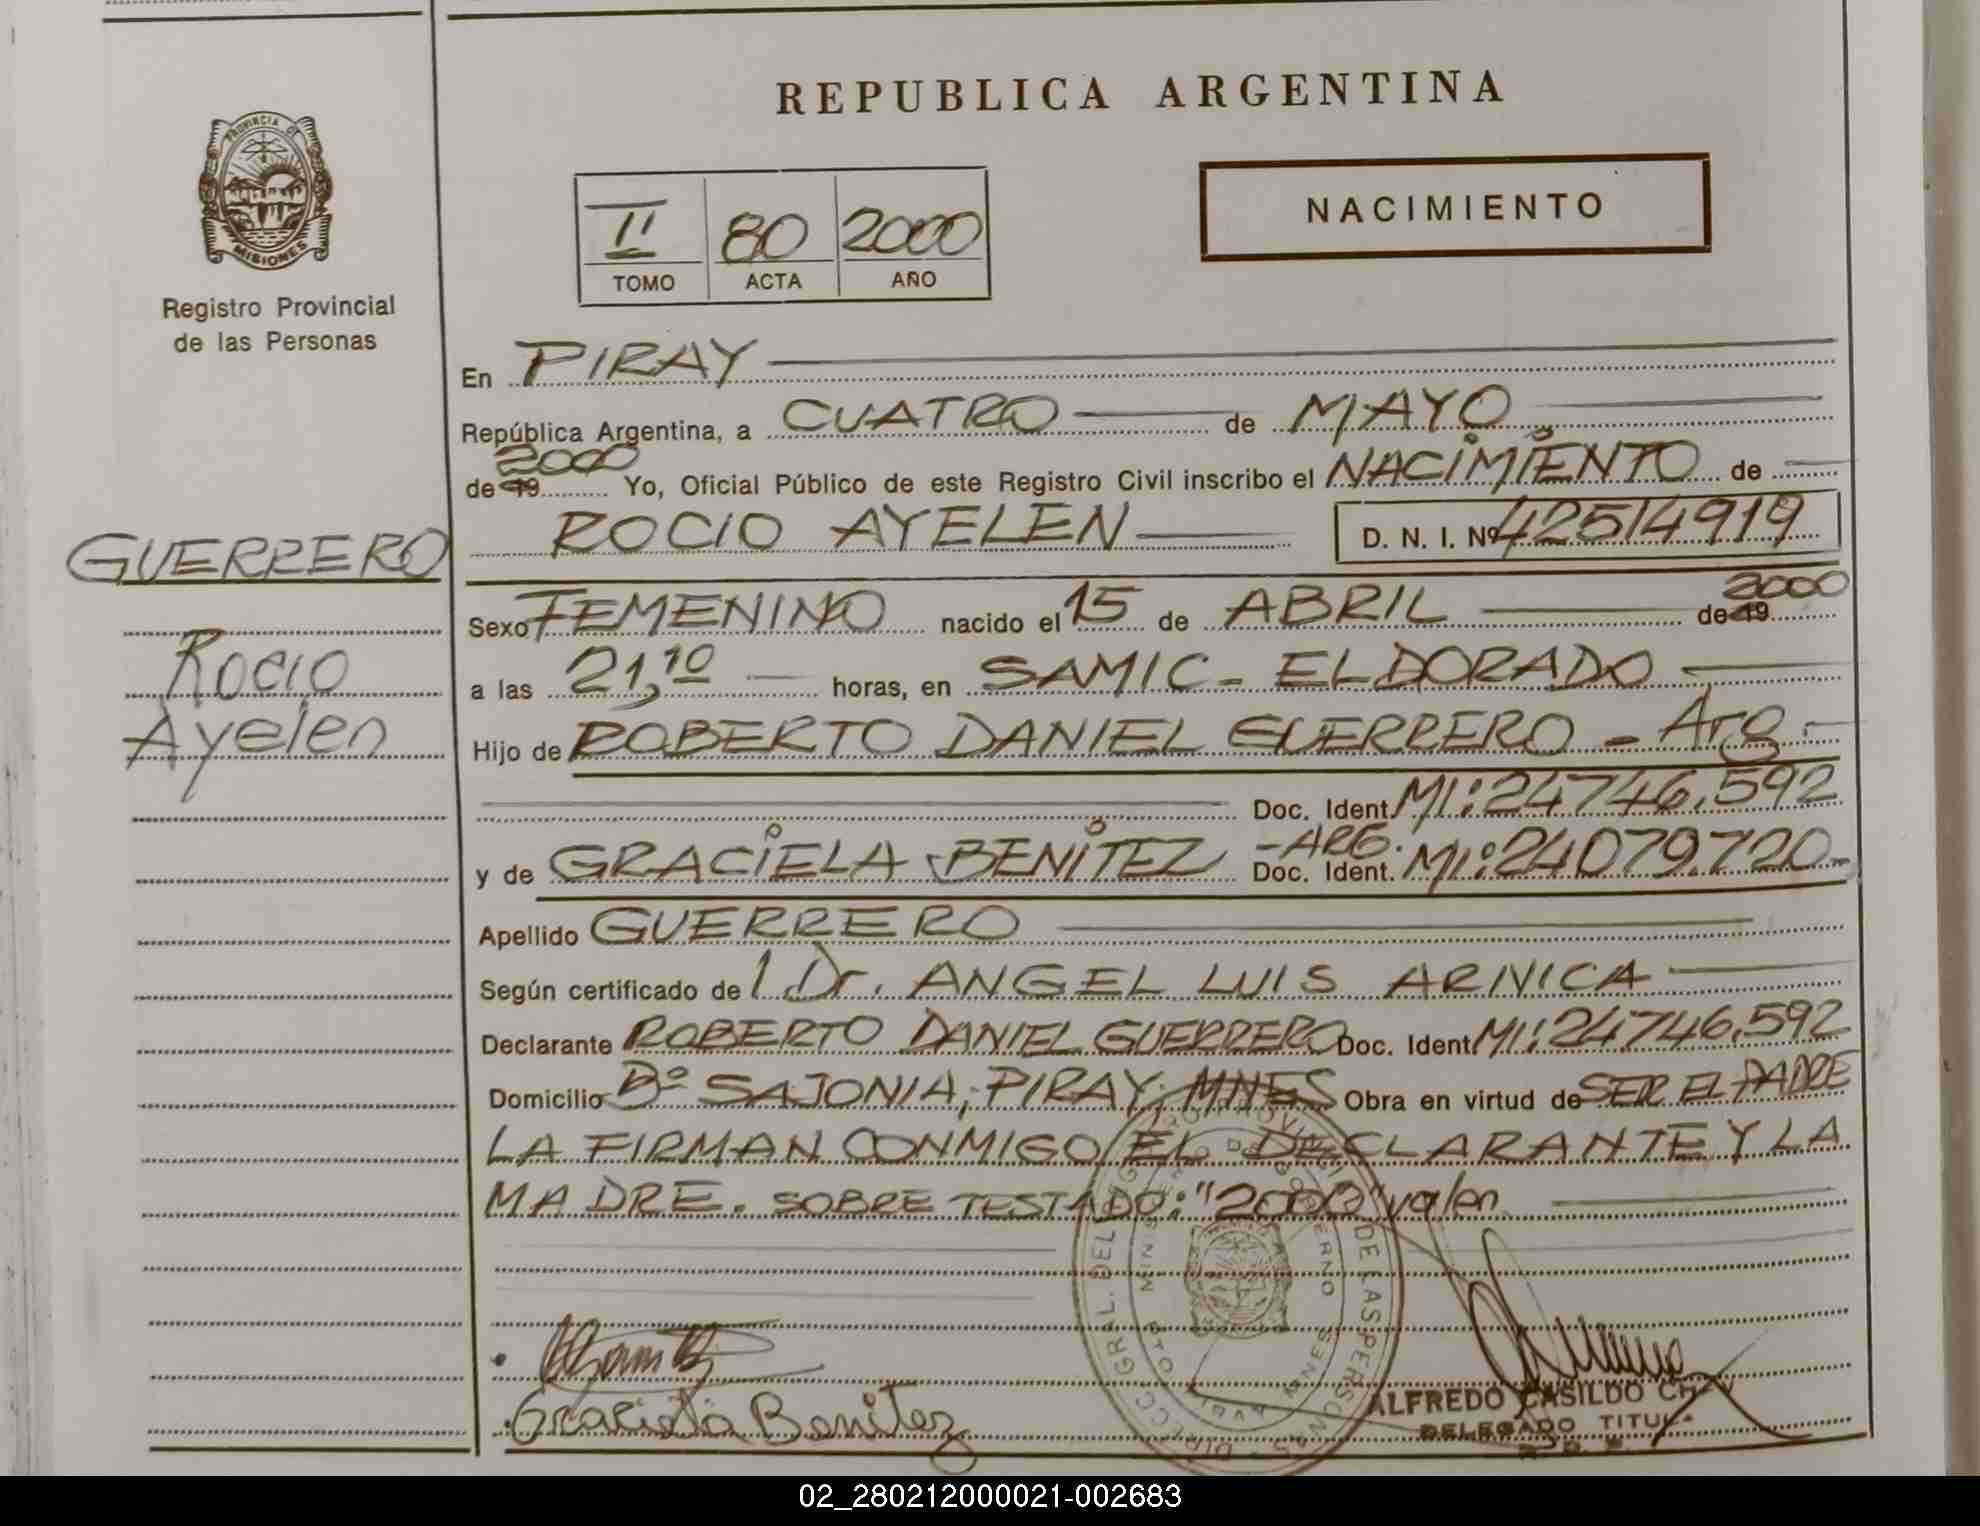 REPUBLICA ARGENTINA
PROVINCIA DE
MISIONES
Registro Provincial
de las Personas
II 80 2000
TOMO ACTA AÑO
NACIMIENTO
En PIRAY
República Argentina, a CUATRO de MAYO
2000
de 19 Yo, Oficial Público de este Registro Civil inscribo el NACIMIENTO de
ROCIO AYELEN D. N. I. Nº 42514919
GUERRERO
Rocio
Ayelen
2000
Sexo FEMENINO nacido el 15 de ABRIL de 19
a las 21,10 horas, en SAMIC - ELDORADO
Hijo de ROBERTO DANIEL GUERRERO - Arg -
Doc. Ident. MI: 24746.592
y de GRACIELA BENITEZ - ARG. Doc. Ident. MI: 24079.720
Apellido GUERRERO
Según certificado de l Dr. ANGEL LUIS ARNICA
Declarante ROBERTO DANIEL GUERRERO Doc. Ident. MI: 24746.592
Domicilio Bº SAJONIA, PIRAY, MNES Obra en virtud de SER EL PADRE
LA FIRMAN CONMIGO EL DECLARANTE Y LA
MADRE. SOBRE TESTADO: "2000" valen
Graciela Benitez
ALFREDO CASILDO
DELEGADO TITUL
02_280212000021-002683